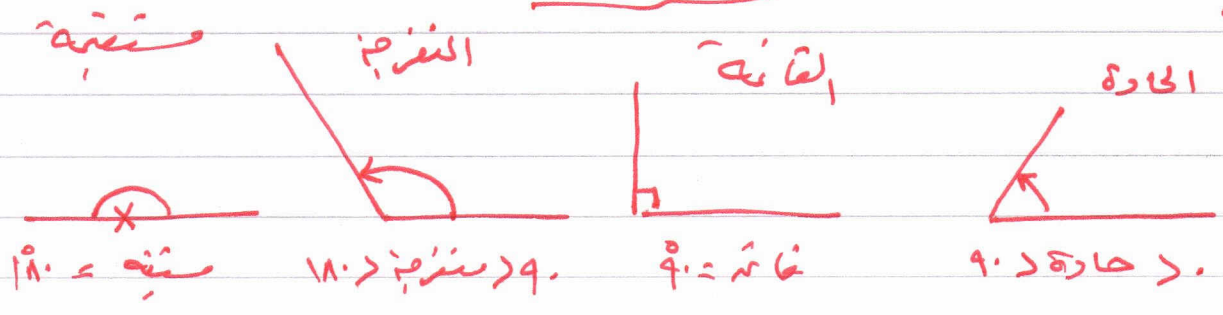 الحادة القائمة المنفرجة مستقيمة
٠ < حادة < ٩٠ قائمة = ٩٠° ٩٠ < منفرجة < ١٨٠ مستقيمة = ١٨٠°